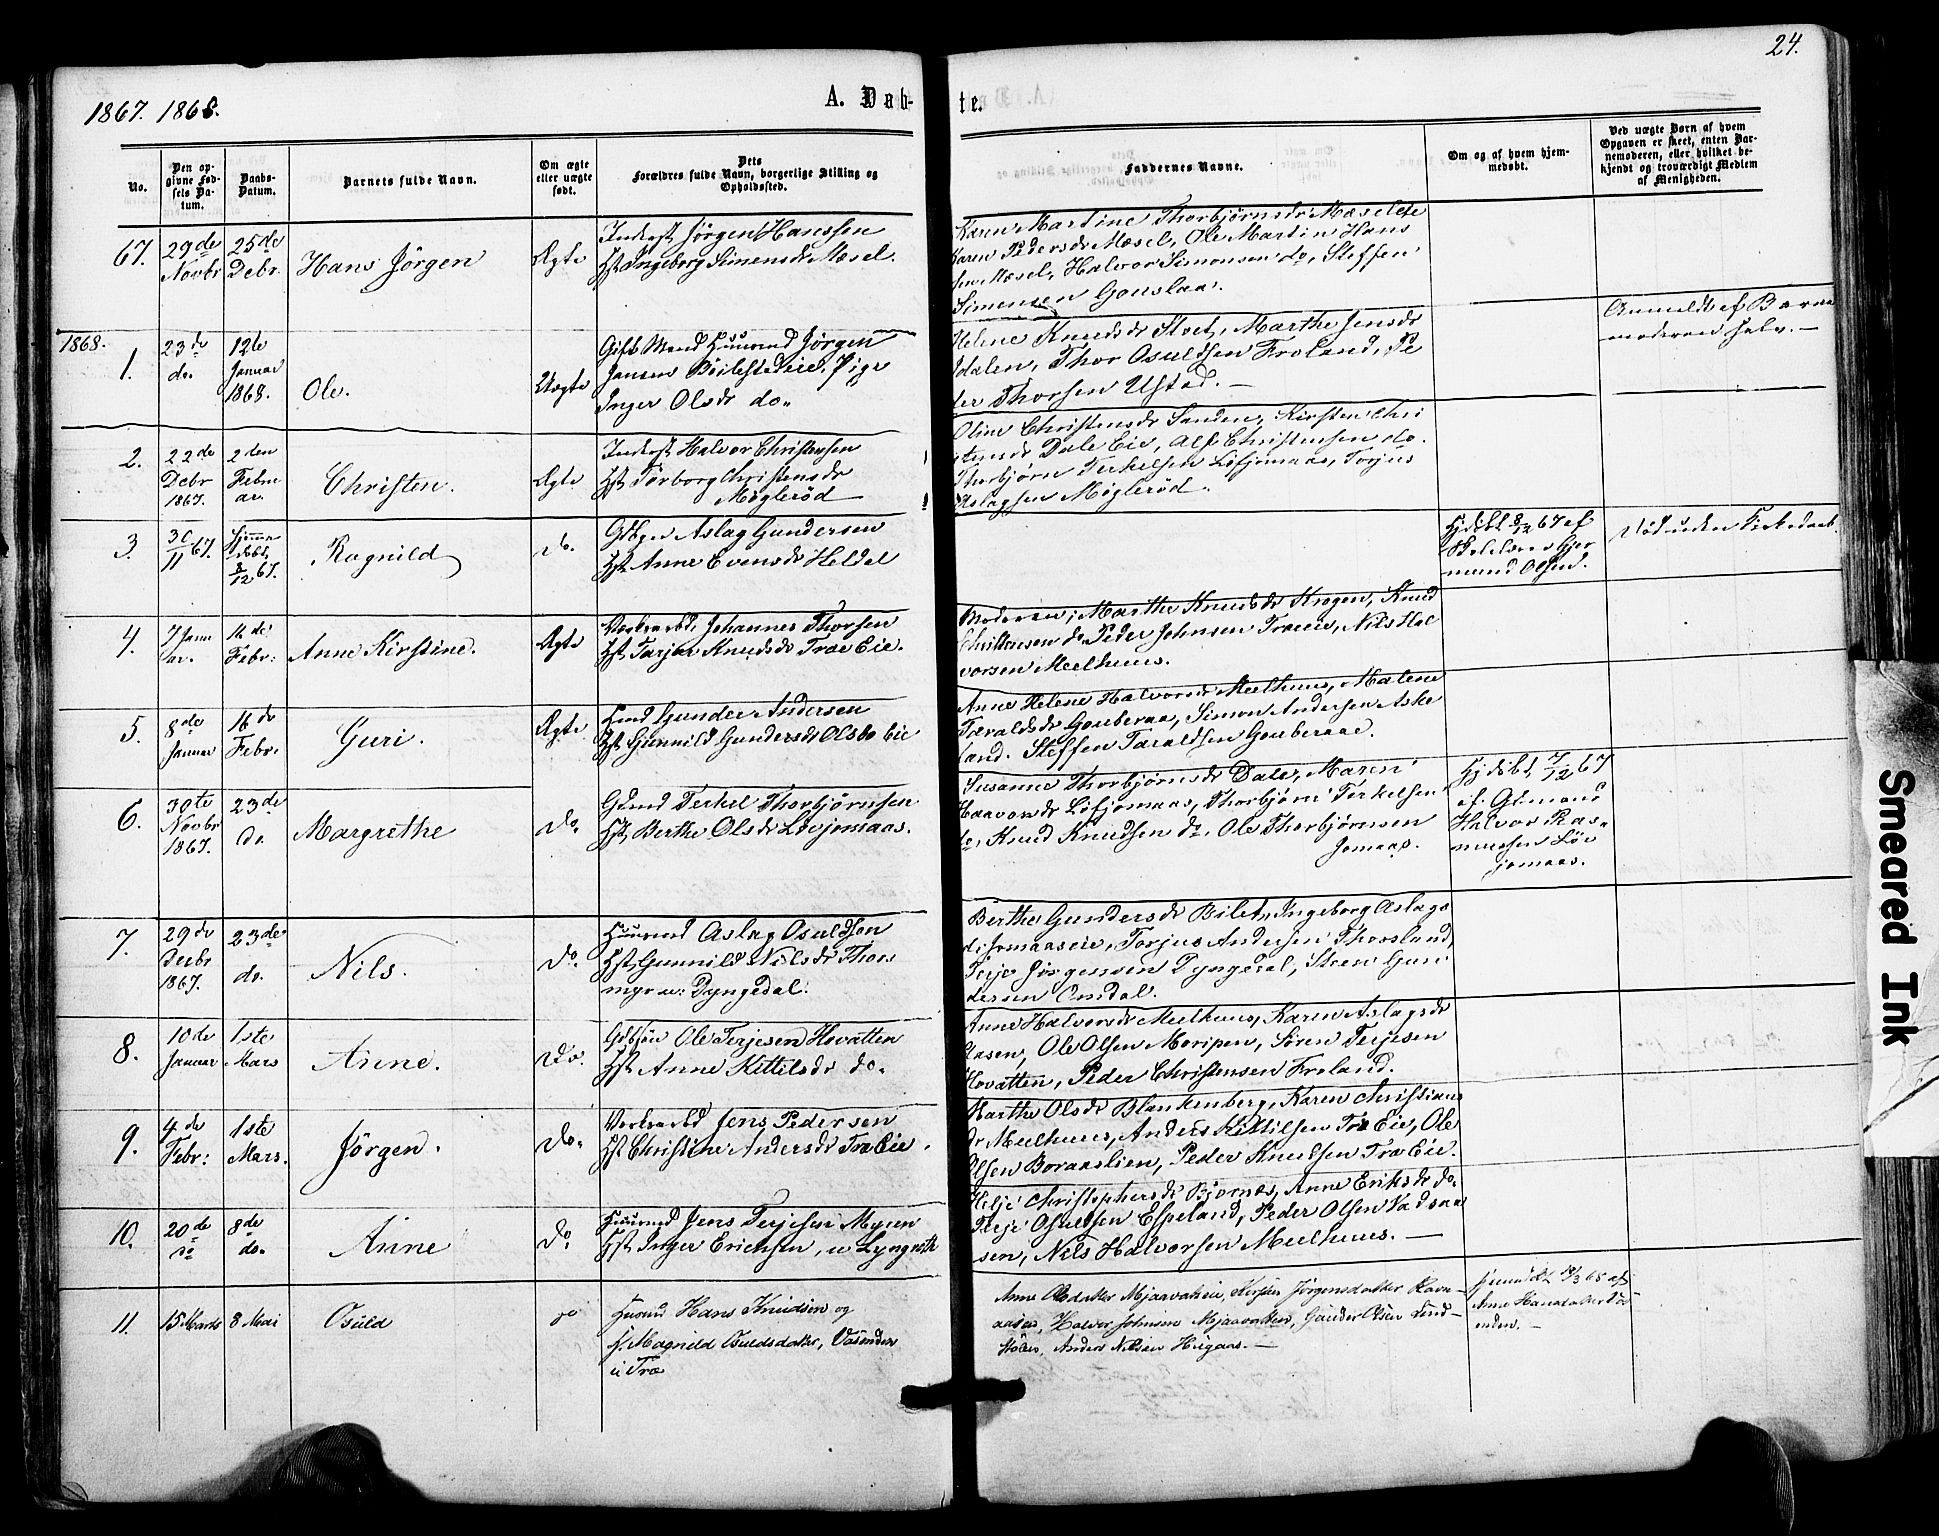 24.
1867. 1868.
A. Døb-
te.
No.
Den op-
givne Fød-
sels Da-
tum.
Daabs-
Datum.
Barnets fulde Navn.
Om ægte
eller uægte
født.
Dets
Forældres fulde Navn, borgerlige Stilling og
Opholdssted.
Faddernes Navne.
Om og af hvem hjem-
medøbt.
Ved uægte Børn af hvem
Opgaven er skeet, enten Bar-
nemoderen, eller hvilket be-
kjendt og troværdigt Medlem
af Menigheden.
67.
29de
Novbr
25de
Debr.
Hans Jörgen
Ægte
Inderst Jørgen Hanssen
Hst Ingeborg Simensdr Mæsel.
Karen Martine Thorbjørnsdr Mæsel
Karen Pedersdr Mæsel, Ole Martin Hans
sen Mæsel, Halvor Simonsen do, Steffen
Simensen Gouslaa.
1868.
1.
23de
do.
12te
Januar
1868.
Ole.
Uægte
Gift Mand Huusmd Jørgen
Jensen Bøilestedeie, Pige
Inger Olsdr do.
Helene Knudsdr Stoet, Marthe Jensdr
dalen, Thor Osuldsen Froland, Pe
der Thorsen Ustad. —
Anmeldt af Barne
moderen selv. —
2.
22de
Debr
1867.
2den
Febru
ar.
Christen.
Ægte
Inderst Halvor Christensen
Hst Torborg Christensdr
Møglerød
Oline Christensdr Sanden, Kirsten Chri
stensdr Dale Eie, Alf Christensen do.
Thorbjørn Terkelsen Løfjomaas, Torjus
Aslagsen Møglerød.
3.
30/11 67.
Hjemme
døbt
8/12 67.
Ragnild
do.
Gdbger Aslag Gundersen
Hst Anne Evensdr Heldal
Hjdøbt 8/12 67 af
Skolelærer Gjer
mund Olsen.
Død uden Kirkedaab
4.
7 Janu
ar.
16de
Febr:
Anne Kirstine.
Ægte
Værksarbd. Johannes Thorsen
Hst Tarjer Knudsdr Træ Eie.
Moderen, Marthe Knudsdr Krogen, Knud
Christensen do Peder Johnsen Træeie, Nils Hal
vorsen Meelhuus.
5.
8de
Januar
16de
Febr.
Guri.
Ægte
Hmd Gunder Andersen
Hst Gunnild Gundersdr Olsbo Eie
Anne Helene Halvorsdr Meelhuus, Malene
Taraldsdr Gouberaa, Simon Andersen Aske
land. Steffen Taraldsen Gouberaae.
6.
30te
Novbr
1867.
23de
do.
Margrethe
Do.
Gbmd Terkel Thorbjørnsen
Hst Berthe Olsdr Løvjomaas.
Susanne Thorbjørnsdr Dale, Maren
Haavorsdr Løfjomaas, Thorbjørn Terkelsen
do, Knud Knudsen do, Ole Thorbjørnsen
Jomaas.
Hjdøbt 7/12 67
af Gbmand
Halvor Ras-
mussen Løv
jomaas.
7.
29de
Decbr
1867.
23de
do.
Nils.
Do.
Huusmd Aslag Osuldsen
Hst Gunnild Nilsdr Thors
myr u: Dyngedal.
Berthe Gundersdr Bilet, Ingeborg Aslags
dr Jomaaseie, Torjus Andersen Thorsland,
Terje Jørgensen Dyngedal, Steen Gun
dersen Omdal.
8.
10de
Januar
1ste
Mars
Anne.
Do.
Gdbsøn Ole Terjesen Hovatten
Hst Anne Kittilsdr do.
Anne Halvorsdr Meelhuus, Karen Aslagsdr
Aasen, Ole Olsen Moripen, Søren Terjesen
Hovatten, Peder Christensen Froland.
9.
4de
Febr:
1ste
Mars.
Jörgen.
Do.
Værksarbd Jens Pedersen
Hst Christine Andersdr Træ Eie.
Marthe Olsdr Blankenberg, Karen Christians
dr Meelhuus, Anders Kittilsen Træ Eie, Ole
Olsen Boraaslien, Peder Knudsen Træ Eie.
10.
20de
do
8de
do.
Anne
Do.
Huusmd Jens Terjesen Myren
Hst Inger Erichsen, u Lyngroth
Hilje Christophersdr Bjornæs, Anne Eriksdr do.
Terje Osuldsen Espeland, Peder Olsen Vadsaa
sen, Nils Halvorsen Meelhuus. —
11.
15 Marts
8 Mai
Osuld
do
Husmd Hans Knudsen og
h. Magnild Osuldsdatter, Vasenden
u Træ
Anne Olsdatter Mjaavatneie, Kirsten Jörgensdatter Ravn-
aasen, Halvor Johnsen Mjaavatten, Gunder Olsen Lind-
stölen, Anders Nilsen Heigaas. —
hjemmedöbt 18/3 68 af
Anne Hansdatter Vas-
enden. —
Smeared Ink